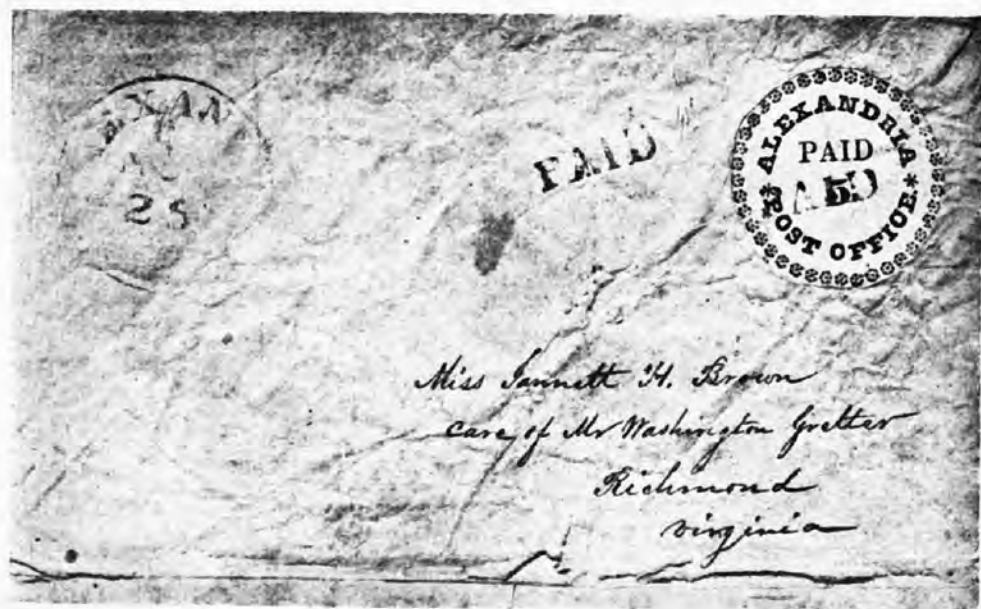 25
PAID
ALEXANDRIA
PAID
5
* POST OFFICE. *
Miss Jannett H. Brown
care, of Mr Washington Gretter
Richmond
virginia